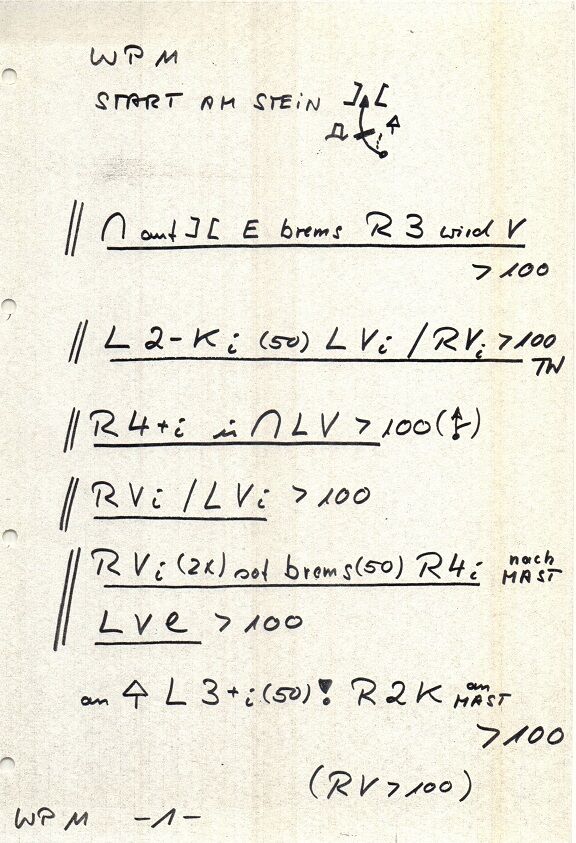 WPM
START AM STEIN ][
∩ auf ][ E brems R 3 wird V
> 100
L 2-K i (50) L V i / R V i > 100
TW
R 4 + i in ∩ L V > 100 ( )
R V i / L V i > 100
R V i (2x) sof brems (50) R 4 i nach MAST
L V e > 100
an L 3 + i (50) ! R 2 K an MAST
> 100
(R V > 100)
WPM - 1 -